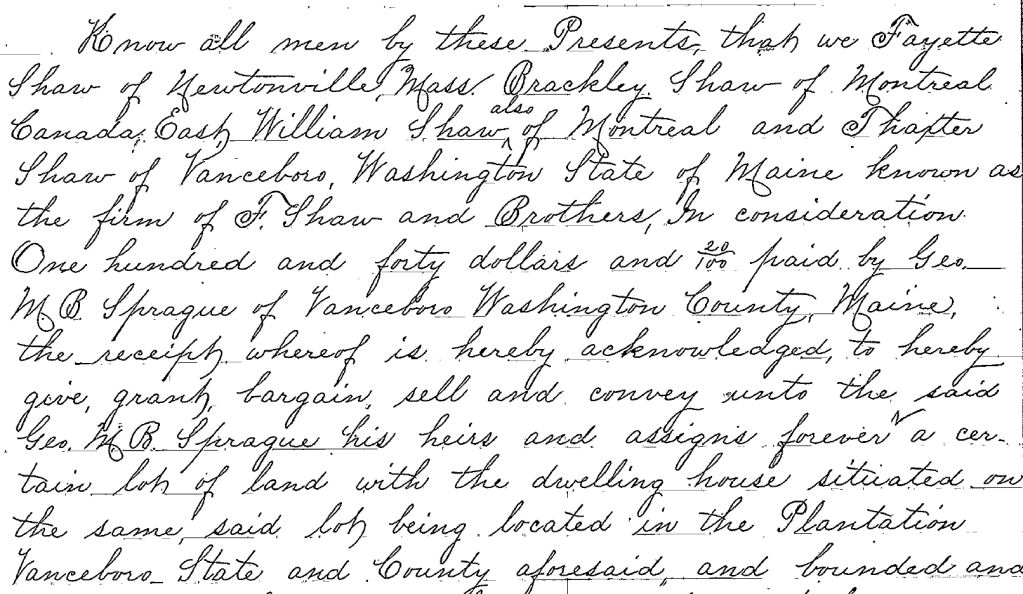 Know all men by these Presents, that we Fayette
Shaw of Newtonville, Mass. Brackley Shaw of Montreal
Canada, East, William Shaw, also of Montreal and Thaxter
Shaw of Vanceboro, Washington State of Maine known as
the firm of F. Shaw and Brothers, In consideration
One hundred and forty dollars and 20/100 paid by Geo.
M B. Sprague of Vanceboro Washington County, Maine,
the receipt whereof is hereby acknowledged, to hereby
give, grant, bargain, sell and convey unto the said
Geo. M B. Sprague his heirs and assigns forever a cer-
tain lot of land with the dwelling house situated on
the same, said lot being located in the Plantation
Vanceboro State and County aforesaid, and bounded and